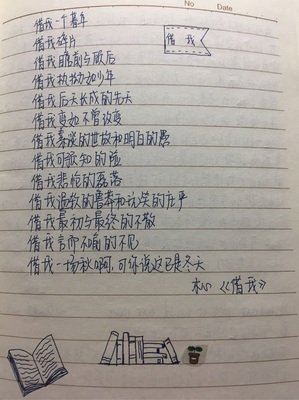 No Date
借我
借我一个暮年
借我碎片
借我瞻前与顾后
借我执拗如少年
借我后天长成的先天
借我变如不曾改变
借我素淡的世故和明白的愚
借我可预知的险
借我悲怆的磊落
借我温软的鲁莽和玩笑的庄严
借我最初与最终的不敢
借我言而不喻的不见
借我一场秋啊,可你说这已是冬天
木心《借我》